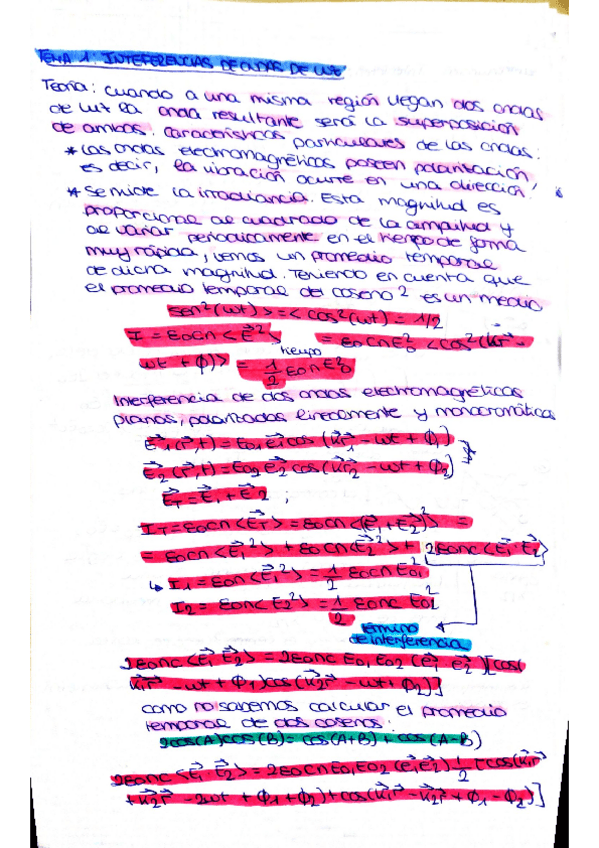 TEMA 1: INTEFERENCIAS DE ONDAS DE LUZ
Teoría: cuando a una misma región llegan dos ondas
de luz la onda resultante será la superposición
de ambas. características particulares de las ondas:
* Las ondas electromagnéticas poseen polarización,
es decir, la vibración ocurre en una dirección.
* Se mide la irradiancia. Esta magnitud es
proporcional al cuadrado de la amplitud y
al variar periodicamente en el tiempo de forma
muy rápida, vemos un promedio temporal
de dicha magnitud. Teniendo en cuenta que
el promedio temporal del coseno² es un medio
sen²(wt)> = < cos²(wt) = 1/2
I = ε0cn < E⃗²> = ε0cnE0² <cos²(k⃗r⃗ -
tiempo
wt + φ)> = 1/2 ε0n E0²
Interferencia de dos ondas electromagnéticas
planas, polarizadas linealmente y monocromáticas
E⃗1(r⃗,t) = E01 e⃗1 cos (k⃗r⃗1 - wt + φ1)
E⃗2(r⃗,t) = E02 e⃗2 cos (k⃗r⃗2 - wt + φ2)
E⃗T = E⃗1 + E⃗2 ;
IT = ε0cn <E⃗T²> = ε0cn <(E⃗1 + E⃗2)²> =
= ε0cn <E⃗1²> + ε0cn <E⃗2²> + 2ε0nc <E⃗1 E⃗2>
↳ I1 = ε0n <E⃗1²> = 1/2 ε0cn E01²
I2 = ε0n < E2²> = 1/2 ε0nc E02²
término
de interferencia
2ε0nc <E⃗1 E⃗2> = 2ε0nc E01 E02 (e⃗1 e⃗2) [cos(
k⃗1r⃗ - wt + φ1) cos (k⃗2r⃗ - wt + φ2)]
como no sabemos calcular el promedio
temporal de dos cosenos:
2cos(A)cos(B) = cos(A+B) + cos (A-B)
2ε0nc <E⃗1 E⃗2> = 2ε0cn E01 E02 (e⃗1 e⃗2) 1/2 [cos(k⃗1r⃗
+ k⃗2r⃗ - 2wt + φ1 + φ2) + cos(k⃗1r⃗ - k⃗2r⃗ + φ1 - φ2)]